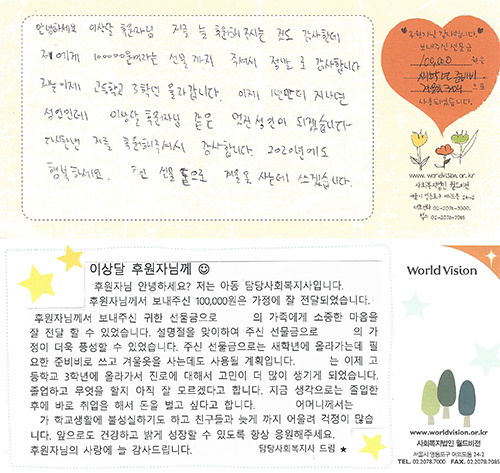 안녕하세요 이상달 후원자님 저를 늘 후원해주시는 것도 감사한데
저에게 100000원이라는 선물까지 주셔서 정말로 감사합니다
저는 이제 고등학교 3학년 올라갑니다. 이제 1년만더 지나면
성인인데 이상달 후원자님 같은 멋진 성인이 되겠습니다
다시한번 저를 후원해주셔서 감사합니다 2020년에도
행복하세요. 선물 으로 겨울옷 사는데 쓰겠습니다.
후원자님 감사합니다.
보내주신 선물금
100,000 원은
새학년 준비
겨울옷구매 으로
사용되었습니다.
www.worldvision.or.kr
사회복지법인 월드비전
이상달 후원자님께 ☺
후원자님 안녕하세요? 저는 아동 담당사회복지사입니다.
후원자님께서 보내주신 100,000원은 가정에 잘 전달되었습니다.
후원자님께서 보내주신 귀한 선물금으로 의 가족에게 소중한 마음을
잘 전달 할 수 있었습니다. 설명절을 맞이하여 주신 선물금으로 의 가
정이 더욱 풍성할 수 있었습니다. 주신 선물금으로는 새학년에 올라가는데 필
요한 준비비로 쓰고 겨울옷을 사는데도 사용될 계획입니다. 는 이제 고
등학교 3학년에 올라가서 진로에 대해서 고민이 더 많이 생기게 되었습니다.
졸업하고 무엇을 할지 아직 잘 모르겠다고 합니다. 지금 생각으로는 졸업한
후에 바로 취업을 해서 돈을 벌고 싶다고 합니다. 어머니께서는
가 학교생활에 불성실하기도 하고 친구들과 늦게 까지 어울려 걱정이 많습
니다. 앞으로도 건강하고 밝게 성장할 수 있도록 항상 응원해주세요.
후원자님의 사랑에 늘 감사드립니다. 담당사회복지사 드림 ★
World Vision
www.worldvision.or.kr
사회복지법인 월드비전
서울시 영등포구 여의도동 24-2
TEL. 02.2078.7000 FAX. 02.2078.7085